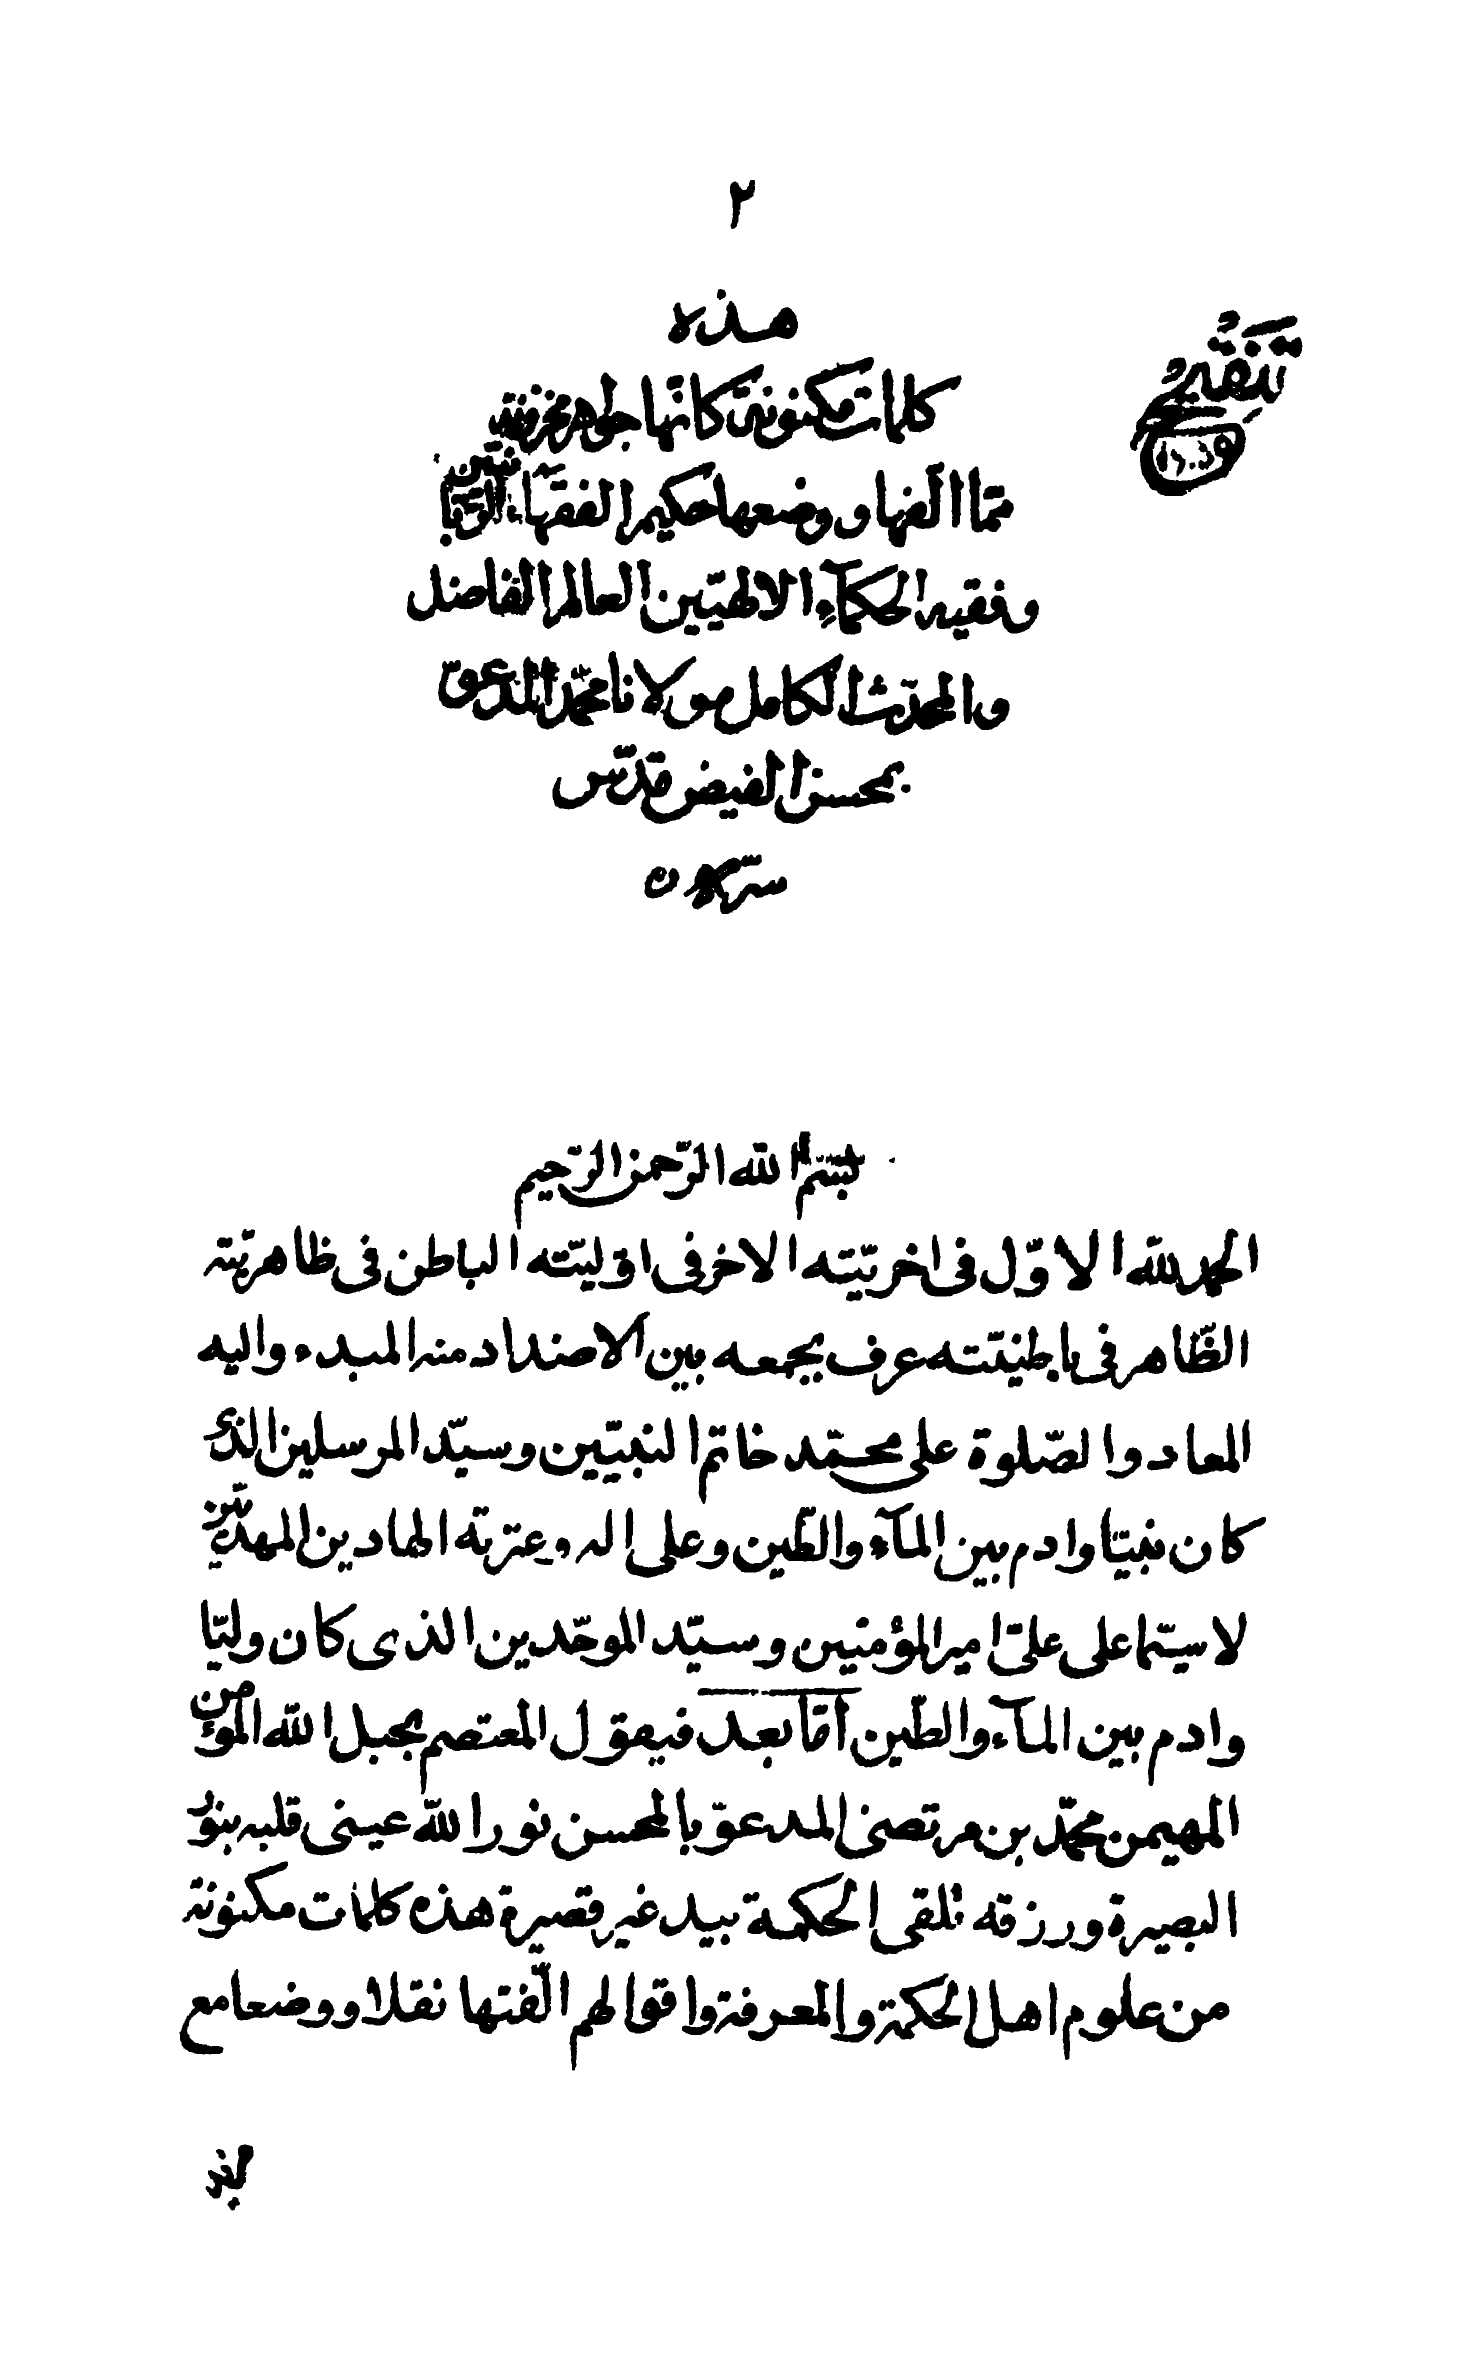 ٢
هذه
تنقيح
كلمات مكنونة كانها جواهر مخزونة
مما الفها و وضعها حكيم الفقهاء الربانيين
وفقيه الحكماء الالهيين العالم الفاضل
والمحدث الكامل مولانا محمد المدعو
بمحسن الفيض قدس
سره
بسم الله الرحمن الرحيم
الحمد لله الاوّل فى اخريّته الاخر فى اوّليّته الباطن فى ظاهريّته
الظّاهر فى باطنيّته عرف بجمعه بين الاضداد منه المبدء واليه
المعاد والصّلوة على محمّد خاتم النبيّين وسيّد المرسلين الذى
كان نبيّا وادم بين المآء والطّين وعلى اله وعترته الهادين المهديّين
لاسيّما على علىّ امير المؤمنين وسيّد الموحّدين الذى كان وليّا
وادم بين المآء والطّين أمّا بعد فيقول المعتصم بحبل الله المؤمن
المهيمن محمّد بن مرتضى المدعوّ بالمحسن نور الله عينى قلبه بنور
البصيرة ورزقه تلقى الحكمة بيد غير قصيرة هذه كلمات مكنونة
من علوم اهل الحكمة والمعرفة واقوالهم الّفتها نقلا ووضعا مع